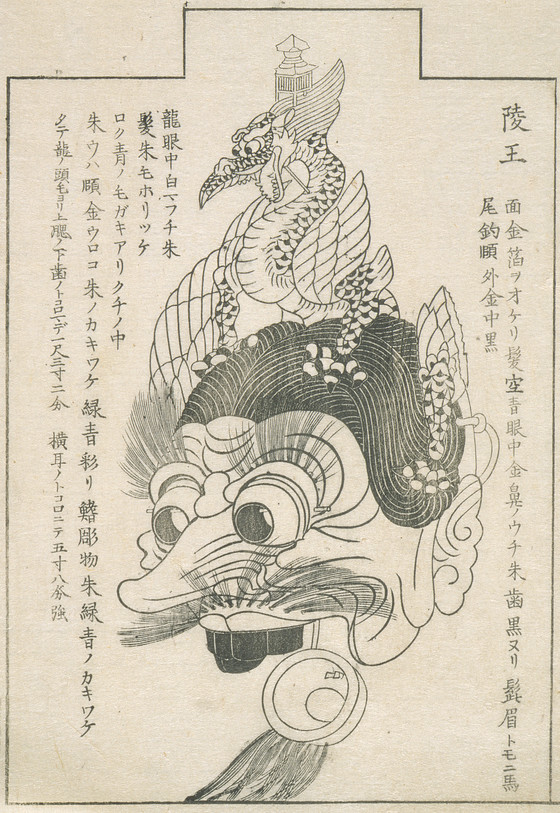 陵王
面金箔ヲオケリ髪空青眼中金鼻ノウチ朱歯黒ヌリ髭眉トモニ馬
尾釣頤外金中黒
龍眼中白フチ朱
髪朱毛ホリツケ
ロク青ノ毛ガキアリクチノ中
朱ウハ頤金ウロコ朱ノカキワケ緑青彩リ鰭彫物朱緑青ノカキワケ
タテ龍ノ頭毛ヨリ上腮ノ下歯ノトコロマデ一尺三寸二分 横耳ノトコロニテ五寸八分強